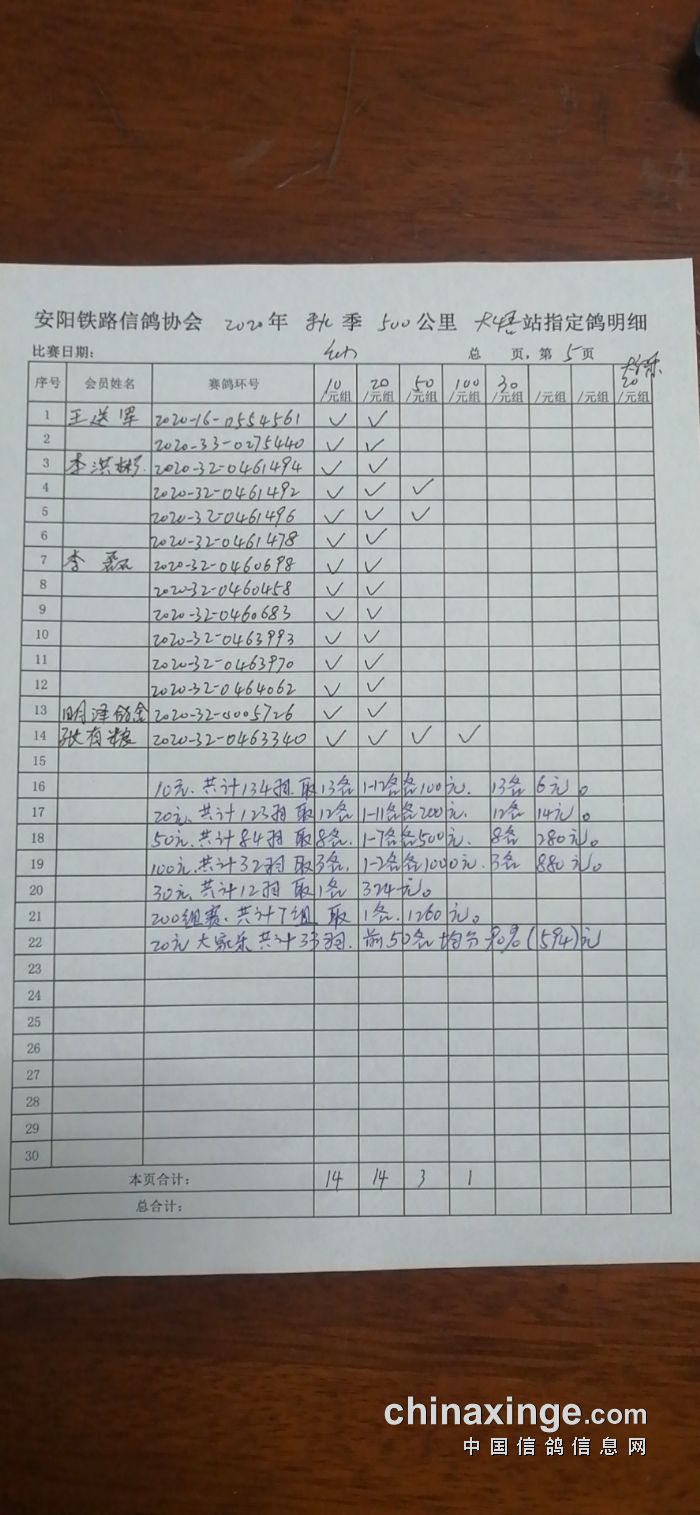 安阳铁路信鸽协会 2020年 秋季 500公里 大悟站指定鸽明细
比赛日期: 总 页,第5页
序号 会员姓名 赛鸽环号 10/元组 20/元组 50/元组 100/元组 30/元组 /元组 /元组 大家乐20/元组
1 王送军 2020-16-0554561 ✓ ✓
2 2020-33-0275440 ✓ ✓
3 李洪彬 2020-32-0461494 ✓ ✓
4 2020-32-0461492 ✓ ✓ ✓
5 2020-32-0461496 ✓ ✓ ✓
6 2020-32-0461478 ✓ ✓
7 李磊 2020-32-0460698 ✓ ✓
8 2020-32-0460458 ✓ ✓
9 2020-32-0460683 ✓ ✓
10 2020-32-0463993 ✓ ✓
11 2020-32-0463970 ✓ ✓
12 2020-32-0464062 ✓ ✓
13 明泽鸽舍 2020-32-0005726 ✓ ✓
14 张有粮 2020-32-0463340 ✓ ✓ ✓ ✓
15
16 10元.共计134羽.取13名 1-12名各100元. 13名 6元。
17 20元.共计123羽 取12名 1-11名各200元. 12名 14元。
18 50元.共计84羽 取8名. 1-7名各500元. 8名 280元。
19 100元.共计32羽 取3名. 1-2名各1000元.3名 880元。
20 30元.共计12羽 取1名 324元。
21 200组赛.共计7组 取1名.1260元。
22 20元大家乐共计33羽.前50名均分90%(594)元
23
24
25
26
27
28
29
30
本页合计: 14 14 3 1
总合计:
chinaxinge.com
中国信鸽信息网